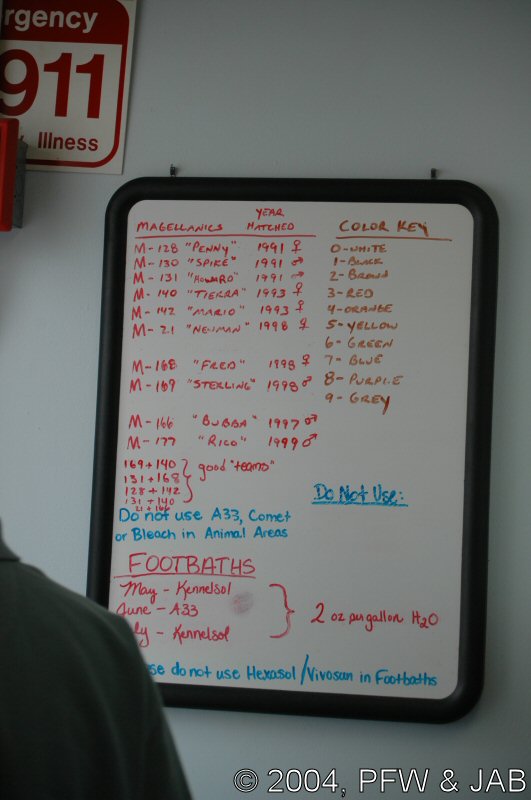 rgency
911
Illness
YEAR
MAGELLANICS HATCHED COLOR KEY
M-128 "PENNY" 1991 ♀ 0-WHITE
M-130 "SPIKE" 1991 ♂ 1-BLACK
M-131 "HOWARD" 1991 ♂ 2-BROWN
M-140 "TIERRA" 1993 ♀ 3-RED
M-142 "MARIO" 1993 ♀ 4-ORANGE
M-21 "NEWMAN" 1998 ♀ 5-YELLOW
6-GREEN
M-168 "FRED" 1998 ♀ 7-BLUE
M-169 "STERLING" 1998 ♂ 8-PURPLE
9-GREY
M-166 "BUBBA" 1997 ♂
M-177 "RICO" 1999 ♂
169+140 good "teams"
131+168
128+142
131+140
21+166
Do Not Use:
Do not use A33, Comet
or Bleach in Animal Areas
FOOTBATHS
May - Kennelsol
June - A33
ly - Kennelsol
2 oz per gallon H2O
se do not use Hexasol/Vivosan in Footbaths
© 2004, PFW & JAB